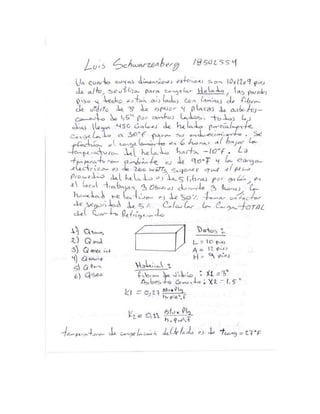 Luis Schwarzenberg 18502554
Un cuarto cuyas dimensiones exteriores son 10x12x9 pies
de alto, se utiliza para congelar Helado, las paredes
piso y techo estan aisladas con laminas de fibra
de vidrio de 3" de espesor y placas de asbesto-
cemento de 1.5" por ambos lados. todos los
dias llegan 450 Galones de helado parcialmente
congelado a 30°F para su endurecimiento. Se
el congelamiento en 6 horas al bajar la
temperatura del helado hasta -10°F. La
temperatura ambiente es de 90°F y la carga
electrica es de 200 watts, supones que el peso
Promedio del helado es de 5 libras por galón, en
el local trabajan 3 Obreros durante 3 horas, la
humedad relativa es de 50%. tomar un factor
de seguridad de 5%. Calcular la Carga TOTAL
del Cuarto Refrigerado
1) Q trans
2) Q prod
3)
4)
5)
6)
Datos:
L = 10 pies
A = 12 pies
H = 9 pies
Material:
Fibra de Vidrio: X1 = 3"
Asbesto Cemento: X2 = 1.5"
K1 = 0,27 Btu x Plg
h.pie².F
K2 = Btu x Plg
h.pie².F
temperatura de congelación del helado es de = 27°F